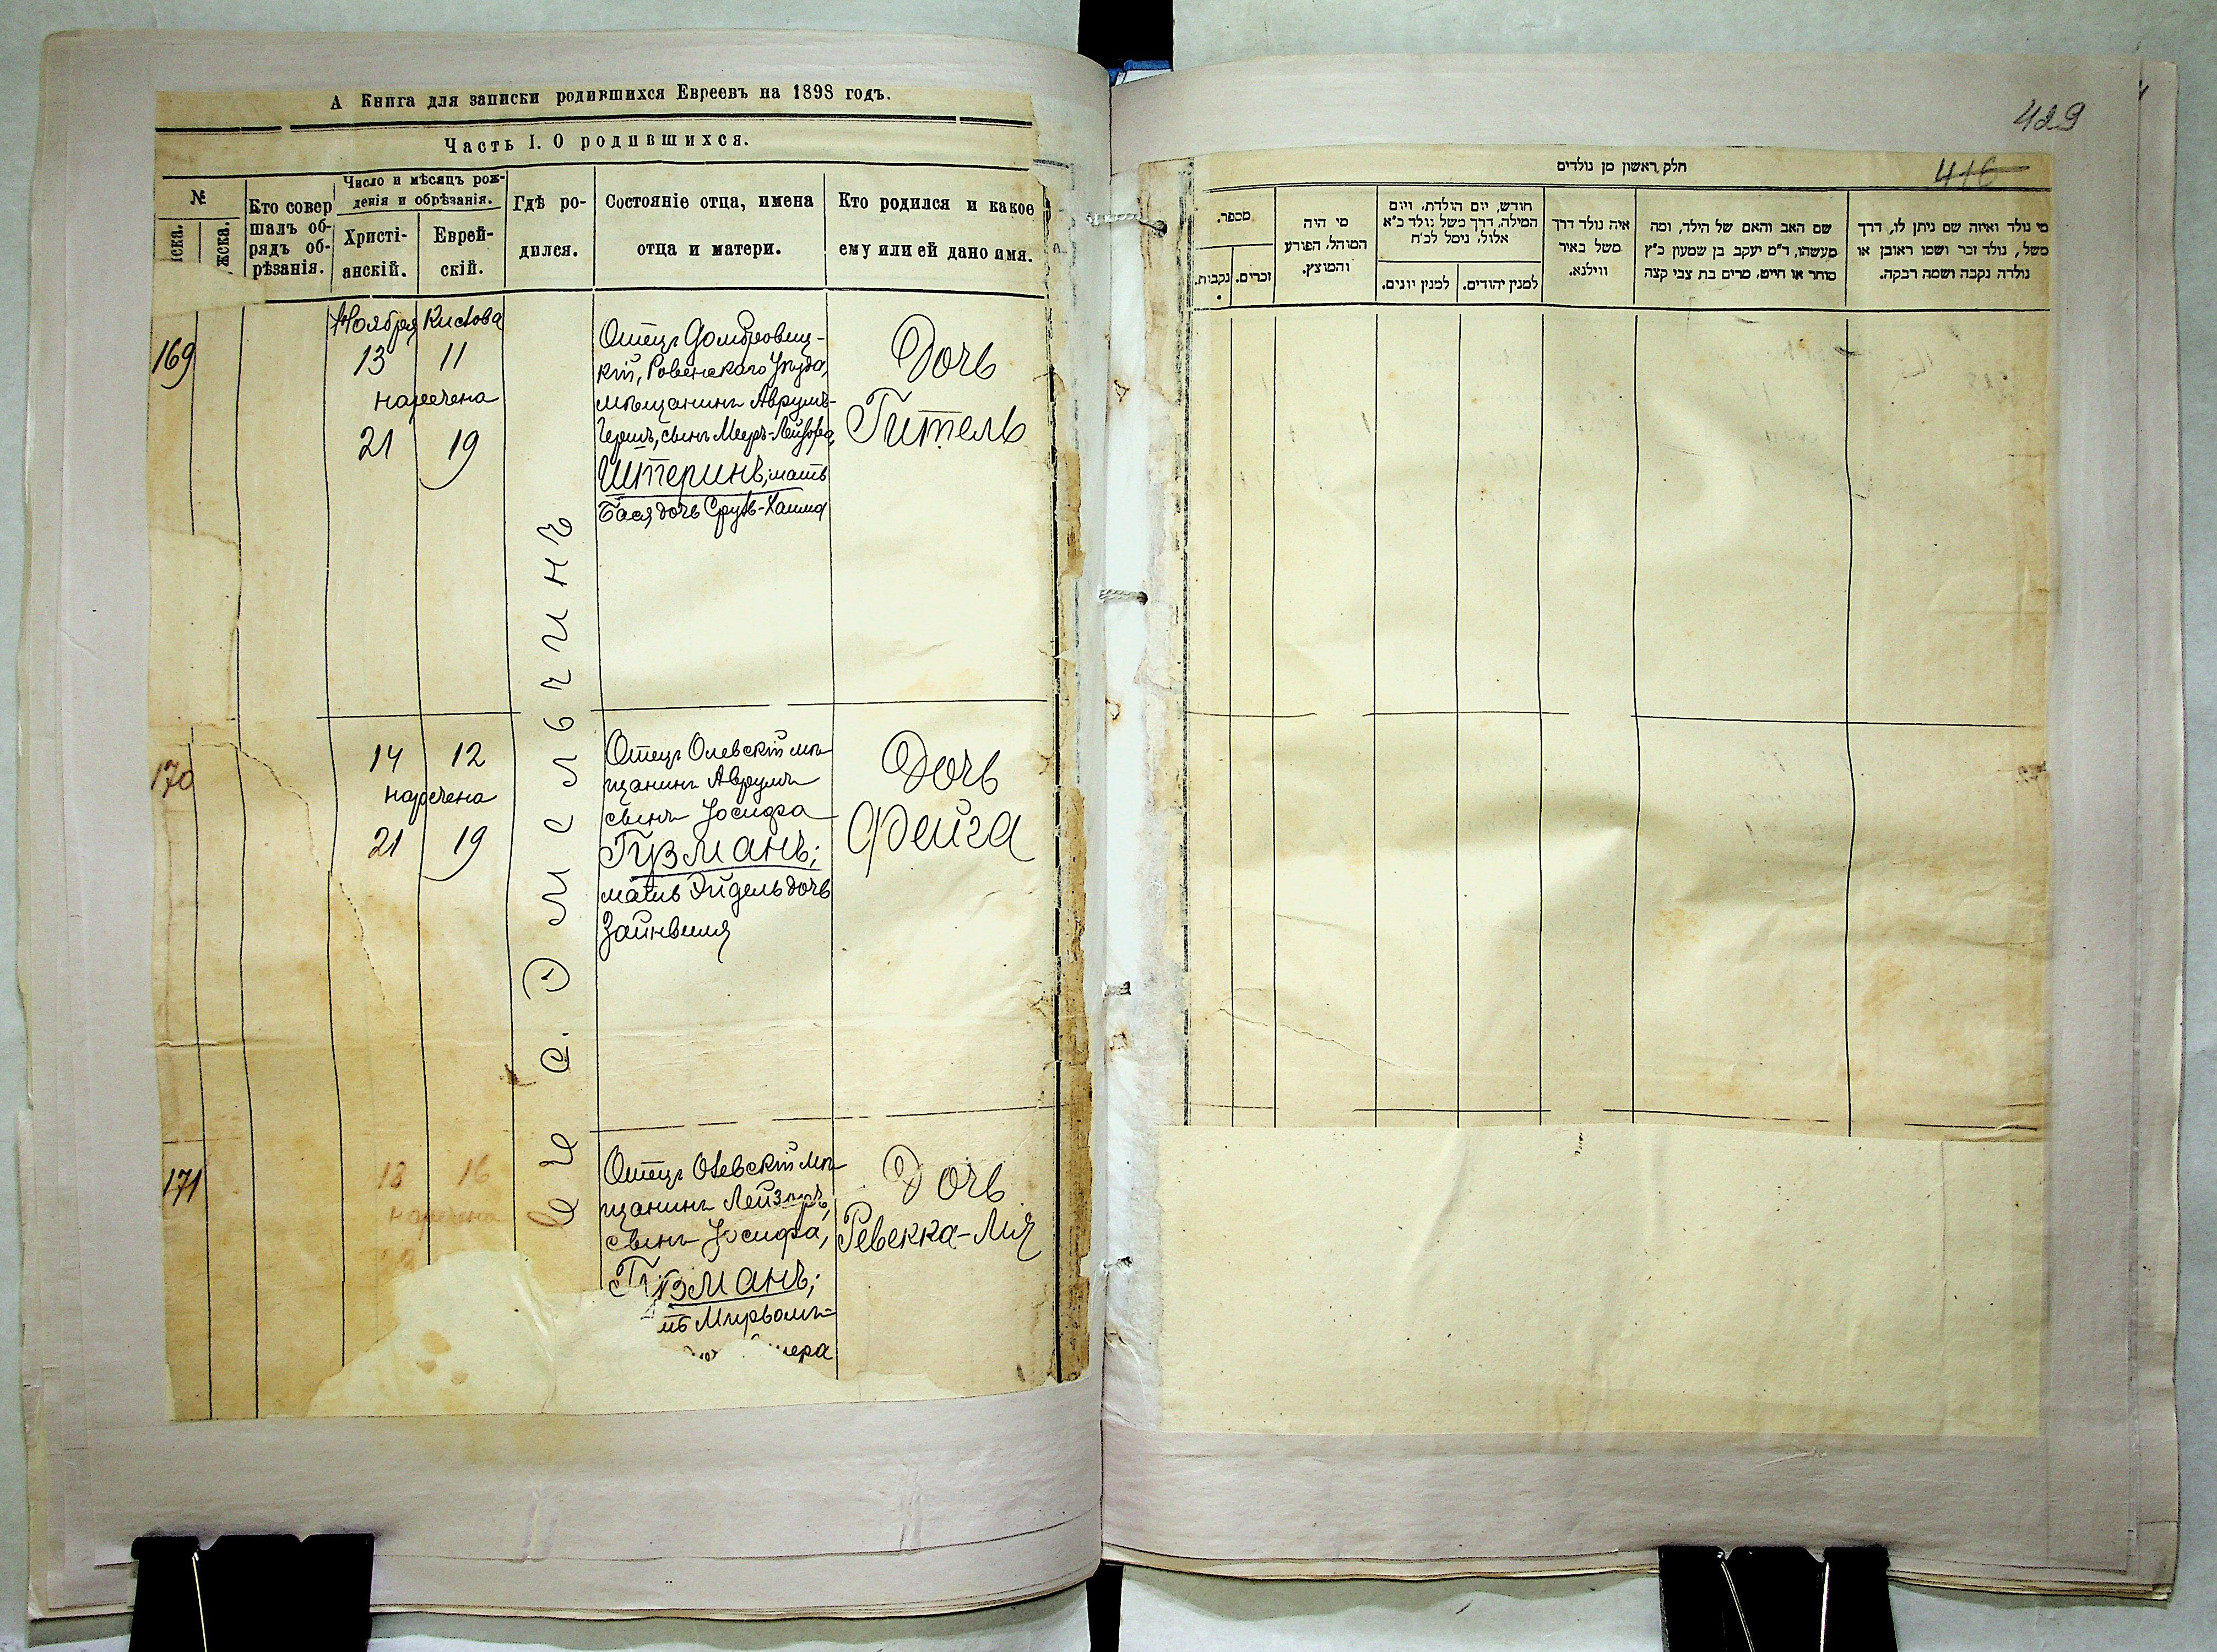 А Книга для записки родившихся Евреевъ на 1898 годъ.
Часть I. О родившихся.
№
ска.
жска.
Кто совер
шалъ об-
рядъ об-
рѣзанія.
Число и мѣсяцъ рож-
денія и обрѣзанія.
Христі-
анскій.
Еврей-
скій.
Гдѣ ро-
дился.
Состояніе отца, имена
отца и матери.
Кто родился и какое
ему или ей дано имя.
Ноября Кислова
169
13 11
наречена
21 19
Отецъ Домбровиц-
кій, Ровенскаго Уѣзда,
мѣщанинъ Аврумъ-
Гершъ, сынъ Мееръ-Лейзора,
Штеринъ; мать
Бася дочь Сруль-Хаима
Дочь
Гитель
въ с. Эмильчинъ
170
14 12
наречена
21 19
Отецъ Олевскій мѣ-
щанинъ Аврумъ
сынъ Іосифа
Гузманъ;
мать Эйдель дочь
Зайнвиля
Дочь
Фейга
171
18 16
наречена
Отецъ Олевскій мѣ-
щанинъ Лейзоръ,
сынъ Іосифа,
Гузманъ;
ть Мирьомъ-
мера
Дочь
Ревекка-Лія
429
416
חלק ראשון מן נולדים
מספר.
זכרים.
נקבות.
מי היה
המוהל, הפורע
והמוצץ.
חודש, יום הולדת, ויום
המילה, דרך משל נולד כ״א
אלול, נימל לכ״ח
למנין יונים.
למנין יהודים.
איה נולד דרך
משל באיר
ווילנא.
שם האב והאם של הילד, ומה
מעשהו, ד״מ יעקב בן שמעון כ״ץ
סוחר או חייט, מרים בת צבי קצה
מי נולד ואיזה שם ניתן לו, דרך
משל, נולד זכר ושמו ראובן או
נולדה נקבה ושמה רבקה.